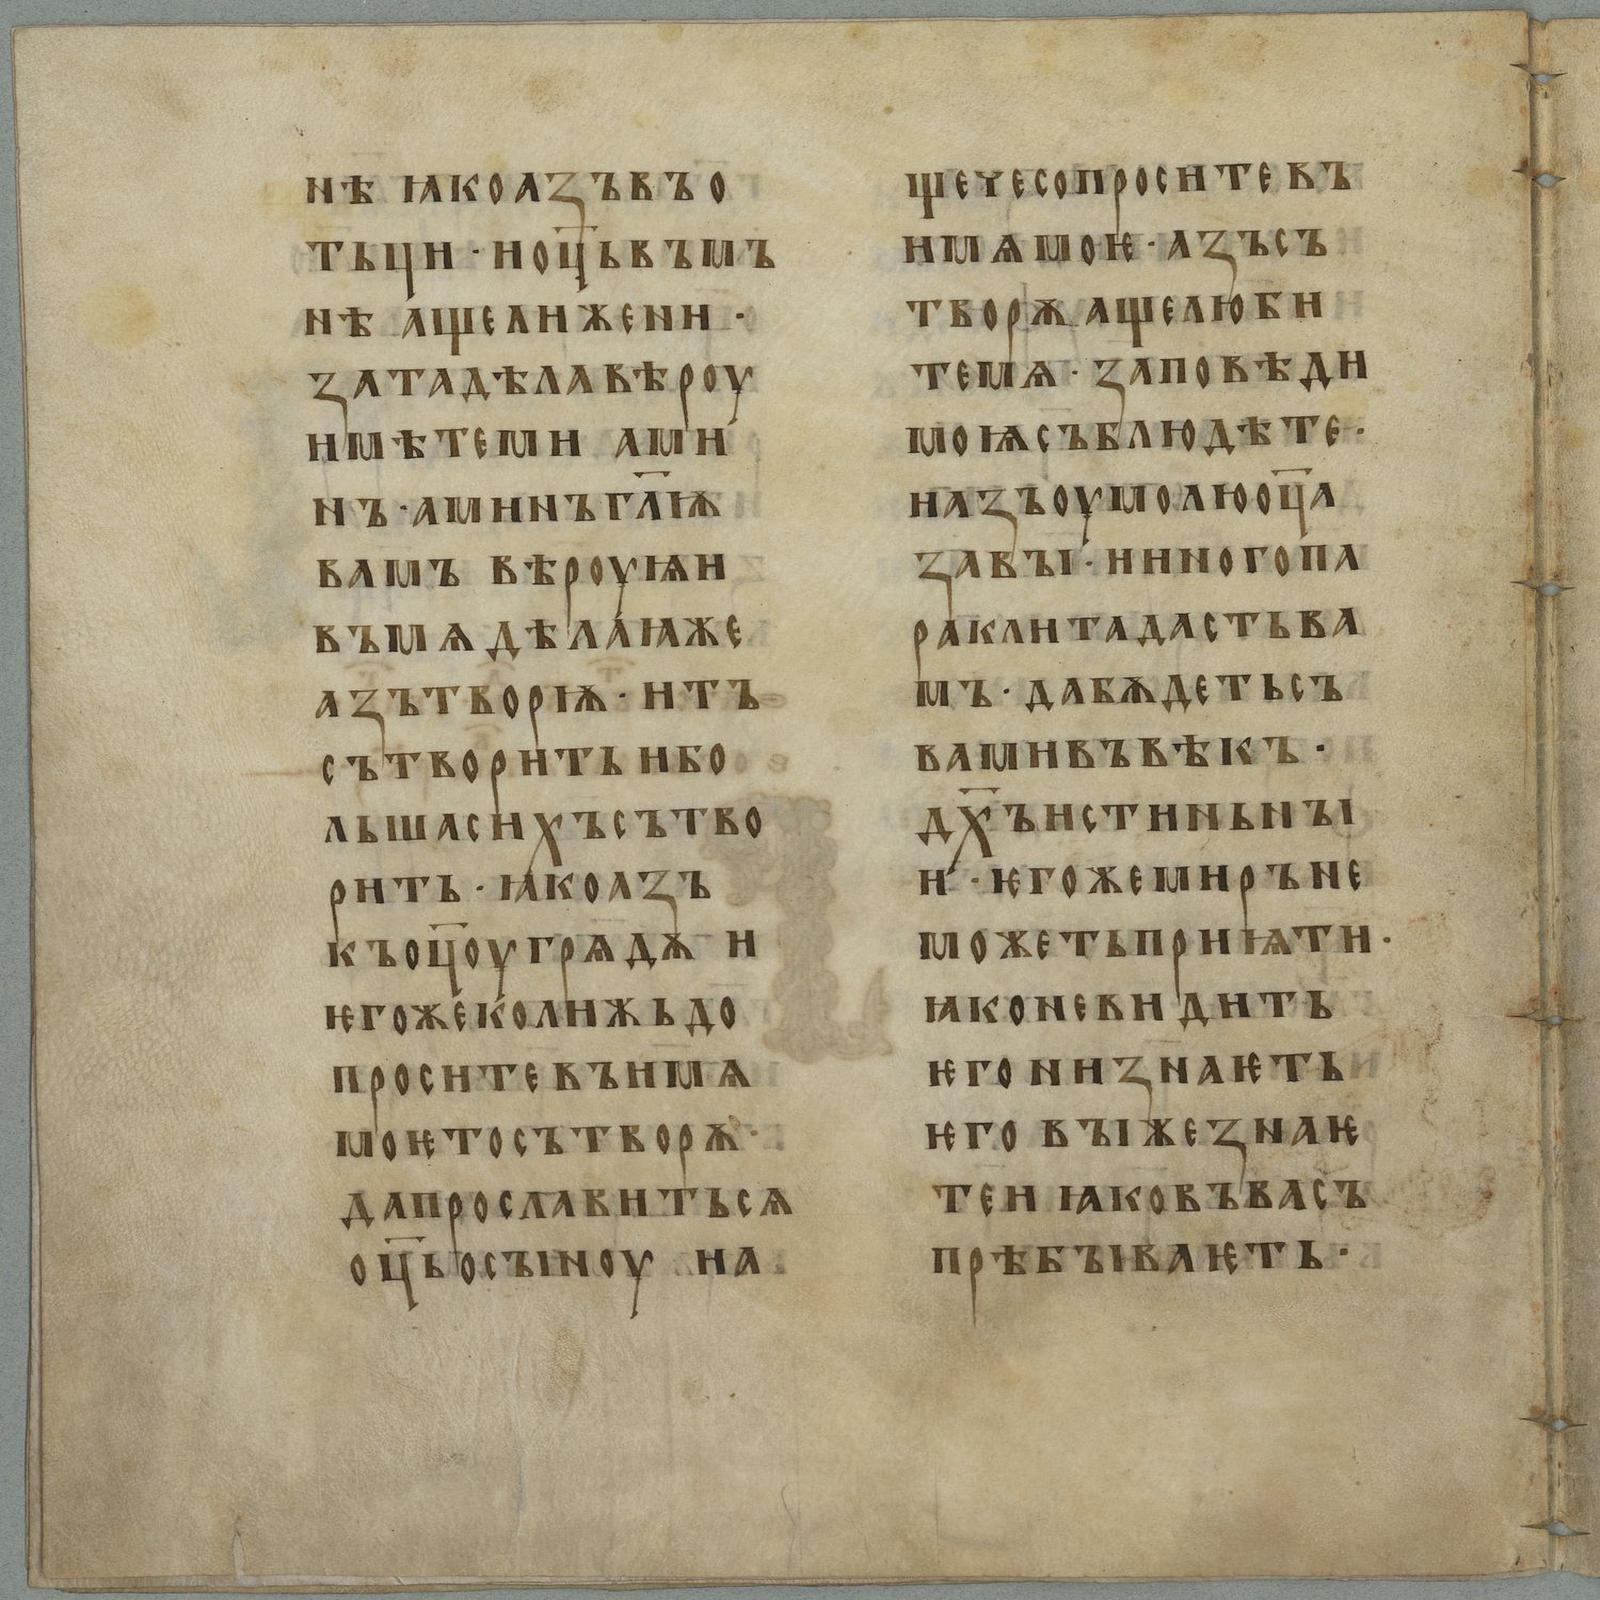 нѣ ꙗкоазъвъо
тьци · ноц҃ьвъмъ
нѣ ащелижени ·
затадѣлавѣроу
имѣтеми амин
нъ · аминъгл҃ѭ
вамъ вѣроуѩи
въмѧ дѣлаꙗже
азътворѭ · итъ
сътворить ибо
льшасихъсътво
рить · ꙗкоазъ
къоц҃оугрѧдѫ и
ѥгожеколижьдо
проситевъимѧ
моѥтосътворѫ ·
дапрославитьсѧ
оц҃ьосъіноу иа
щечесопроситевъ
имѧмоѥ · азъсъ
творѫ ащелюби
темѧ · заповѣди
моѩсъблюдѣте ·
иазъоумолюоц҃а
завъі · ииногопа
раклитадастьва
мъ · дабѫдетьсъ
вамивъвѣкъ ·
дх҃ъистиньнъі
и · ѥгожемиръне
можетьприѩти ·
ꙗконевидить
ѥго низнаѥть
ѥго въіжезнаѥ
теи ꙗковъвасъ
прѣбъіваѥть ·